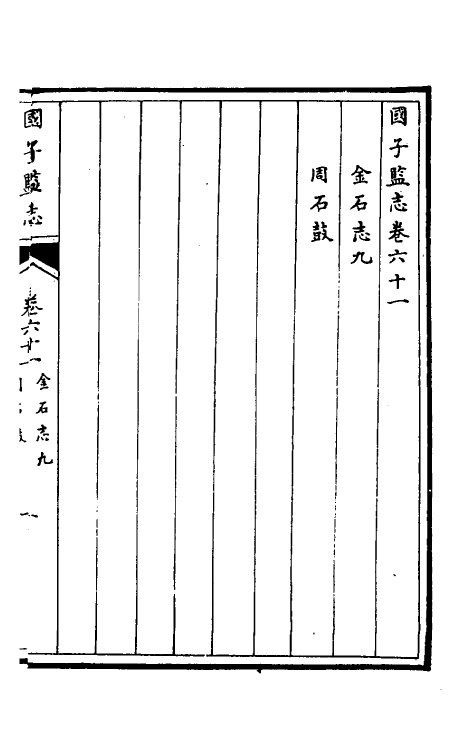 國子監志卷六十一
金石志九
周石鼓
國子監志
卷六十一
金石志九